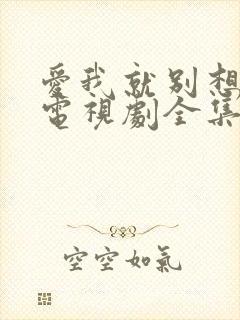 愛我就別想
電視劇全集
空空如氣